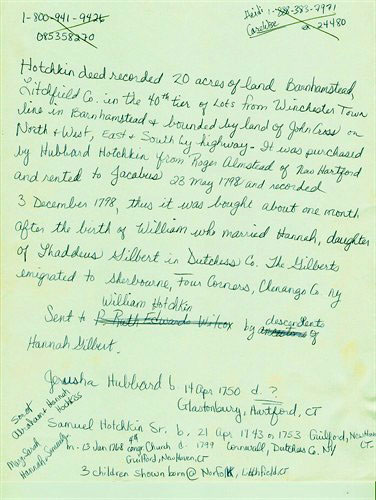 1-800-941-9425
085358270
Heidi 1-888-383-7971
Caroline x 24480
Hotchkin deed recorded 20 acres of land Barnhamstead,
Litchfield Co. in the 40th tier of Lots from Winchester Town
line in Barnhamstead & bounded by land of John Cross on
North & West, East & South by highway - It was purchased
by Hubbard Hotchkin from Roger Almstead of New Hartford
and rented to Jacobus 28 May 1798 and recorded
3 December 1798, thus it was bought about one month
after the birth of William who married Hannah, daughter
of Thaddeus Gilbert in Dutchess Co. The Gilberts
emigrated to Sherbourne, Four Corners, Chenango Co. NY
William Hotchkin
Sent to P. Ruth Edwards Wilcox by descendents of
Hannah Gilbert.
Jerusha Hubbard b 14 apr 1750 d. ?
Glastonbury, Hartford, CT
Son of
Abraham & Hannah
Hotchkiss
Samuel Hotchkin Sr. b. 21 apr 1743 or 1753 Guilford, New Haven
CT
m. 13 Jan 1768 4th cong. Church d. 1799 Cornwall, Dutchess Co. N.Y.
Guilford, New Haven, CT
3 children shown born @ Norfolk, Litchfield CT